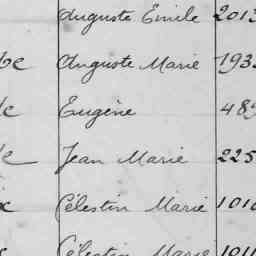 Auguste Emile 2013
be Auguste Marie 193
le Eugène 489
le Jean Marie 225
x Célestin Marie 1010
Célestin Marie 1011